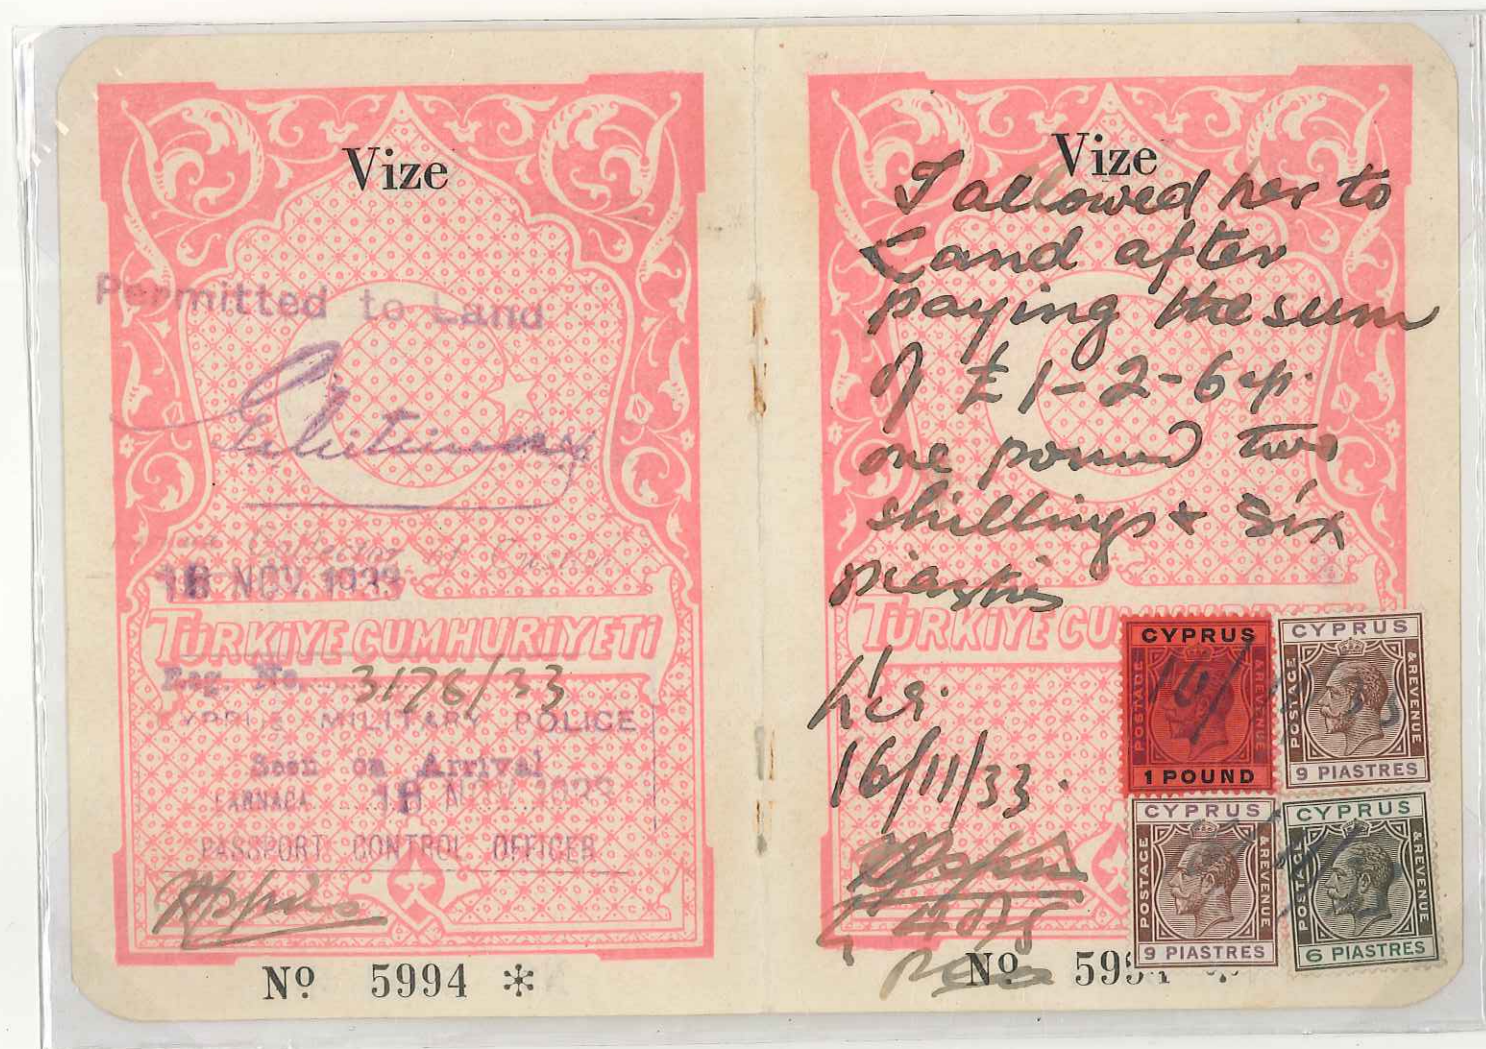 Vize
Permitted to Land
Collector of Customs
16 NOV. 1933
TÜRKİYE CUMHURİYETİ
Reg. No. 3176/33
CYPRUS MILITARY POLICE
Seen on Arrival
LARNACA 16 NOV 1933
PASSPORT CONTROL OFFICER
Nº 5994 *
Vize
I allowed her to
Land after
paying the sum
of £1-2-6cp.
one pound two
shillings & six
piastres
TÜRKİYE CU
L'ca.
16/11/33.
CYPRUS
POSTAGE
& REVENUE
1 POUND
CYPRUS
POSTAGE
& REVENUE
9 PIASTRES
CYPRUS
POSTAGE
& REVENUE
9 PIASTRES
CYPRUS
POSTAGE
& REVENUE
6 PIASTRES
Nº 5994 *